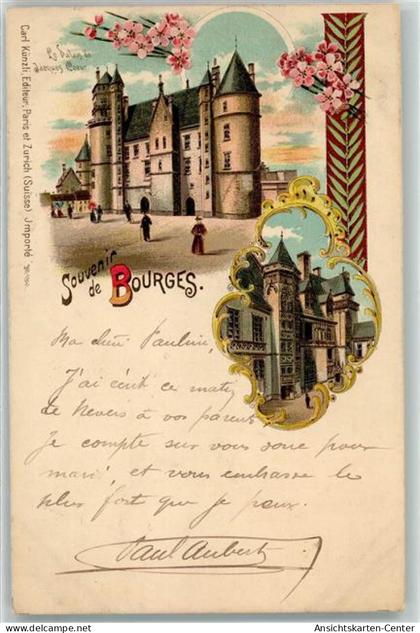 Le Palais de
Jacques Cœur
Carl Künzli, Editeur, Paris et Zurich (Suisse) Importé
Souvenir
de BOURGES.
Ma chère Pauline,
J'ai écrit ce matin
de Nevers à vos parents
Je compte sur vous donc pour
mardi et vous embrasse le
plus fort que je peux.
Paul Aubert
Ansichtskarten-Center